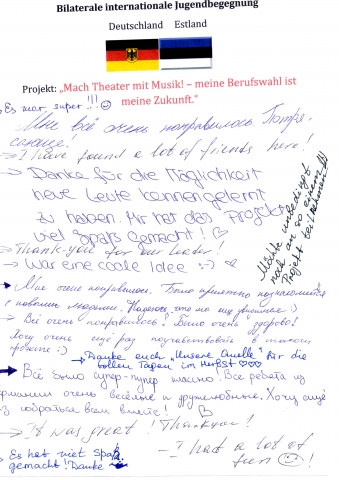 Bilaterale internationale Jugendbegegnung
Deutschland Estland
Projekt: „Mach Theater mit Musik! – meine Berufswahl ist
meine Zukunft.“
Es war super!!! ☺
Мне всё очень понравилось. Потря-
сающе!
→ I have found a lot of friends here!
→ Danke für die Möglichkeit
neue Leute kennengelernt
zu haben. Mir hat das Projekt
viel Spaß gemacht! ♡
Möchte unbedingt
noch an so einem
Projekt teilnehmen!
→ Thank you for our leader!
→ War eine coole Idee :-)
Мне очень понравилось. Было приятно познакомиться
с новыми людьми. Надеюсь, что мы ещё
→ Всё очень понравилось! Было очень здорово!
Хочу очень ещё раз поучаствовать в таком
:)
→ Danke auch „Unsere Quelle“ für die
tollen Tagen im Herbst ♡♡♡
Всё было супер-пупер классно! Все ребята из
Германии очень весёлые и дружелюбные. Хочу ещё
раз собраться всем вместе!
→ It was great! Thank you!
→ I had a lot of
fun ☺!
→ Es hat viel Spaß
gemacht! Danke